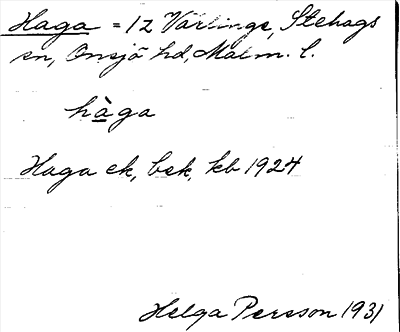 Haga = 12 Värlinge, Stehags
sn, Onsjö hd, Malm. l.
hàga
Haga ek, bsk, kb 1924
Helga Persson 1931